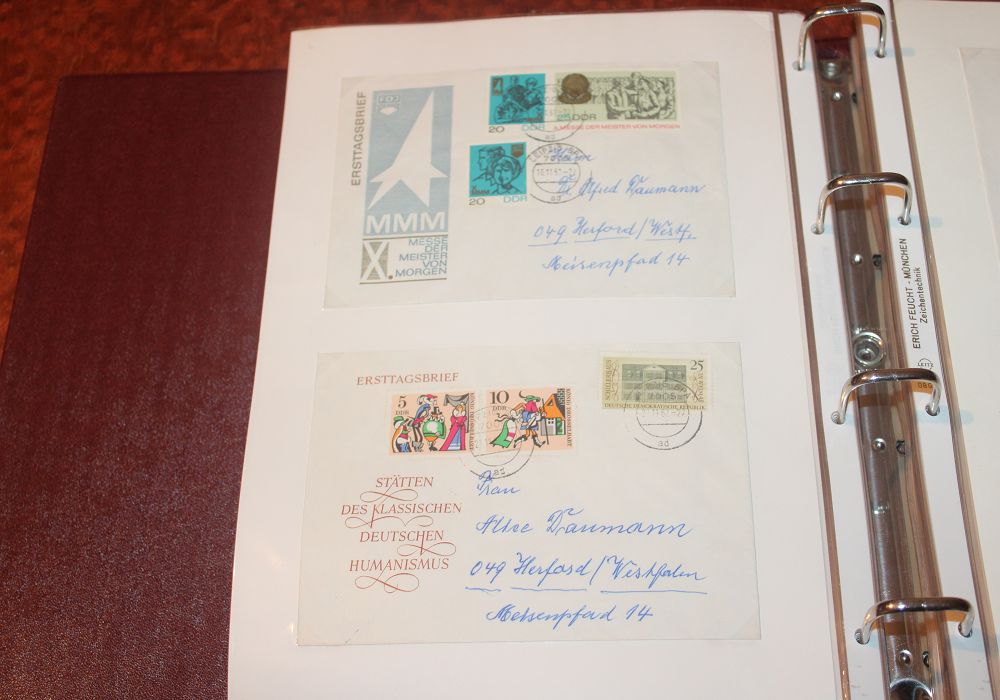 ERSTTAGSBRIEF
MMM
X.
MESSE
DER
MEISTER
VON
MORGEN
20 DDR
25 DDR
X. MESSE DER MEISTER VON MORGEN
20 DDR
LEIPZIG
16.11.67
ad
Herrn
Dr. Alfred Däumann
049 Herford/Westf.
Meisenpfad 14
ERSTTAGSBRIEF
5
DDR
KÖNIG DROSSELBART
10
DDR
KÖNIG DROSSELBART
25
DEUTSCHE DEMOKRATISCHE REPUBLIK
ad
ad
STÄTTEN
DES KLASSISCHEN
DEUTSCHEN
HUMANISMUS
Frau
Däumann
049 Herford/Westfalen
Meisenpfad 14
ERICH FEUCHT - MÜNCHEN
Zeichentechnik
LEITZ